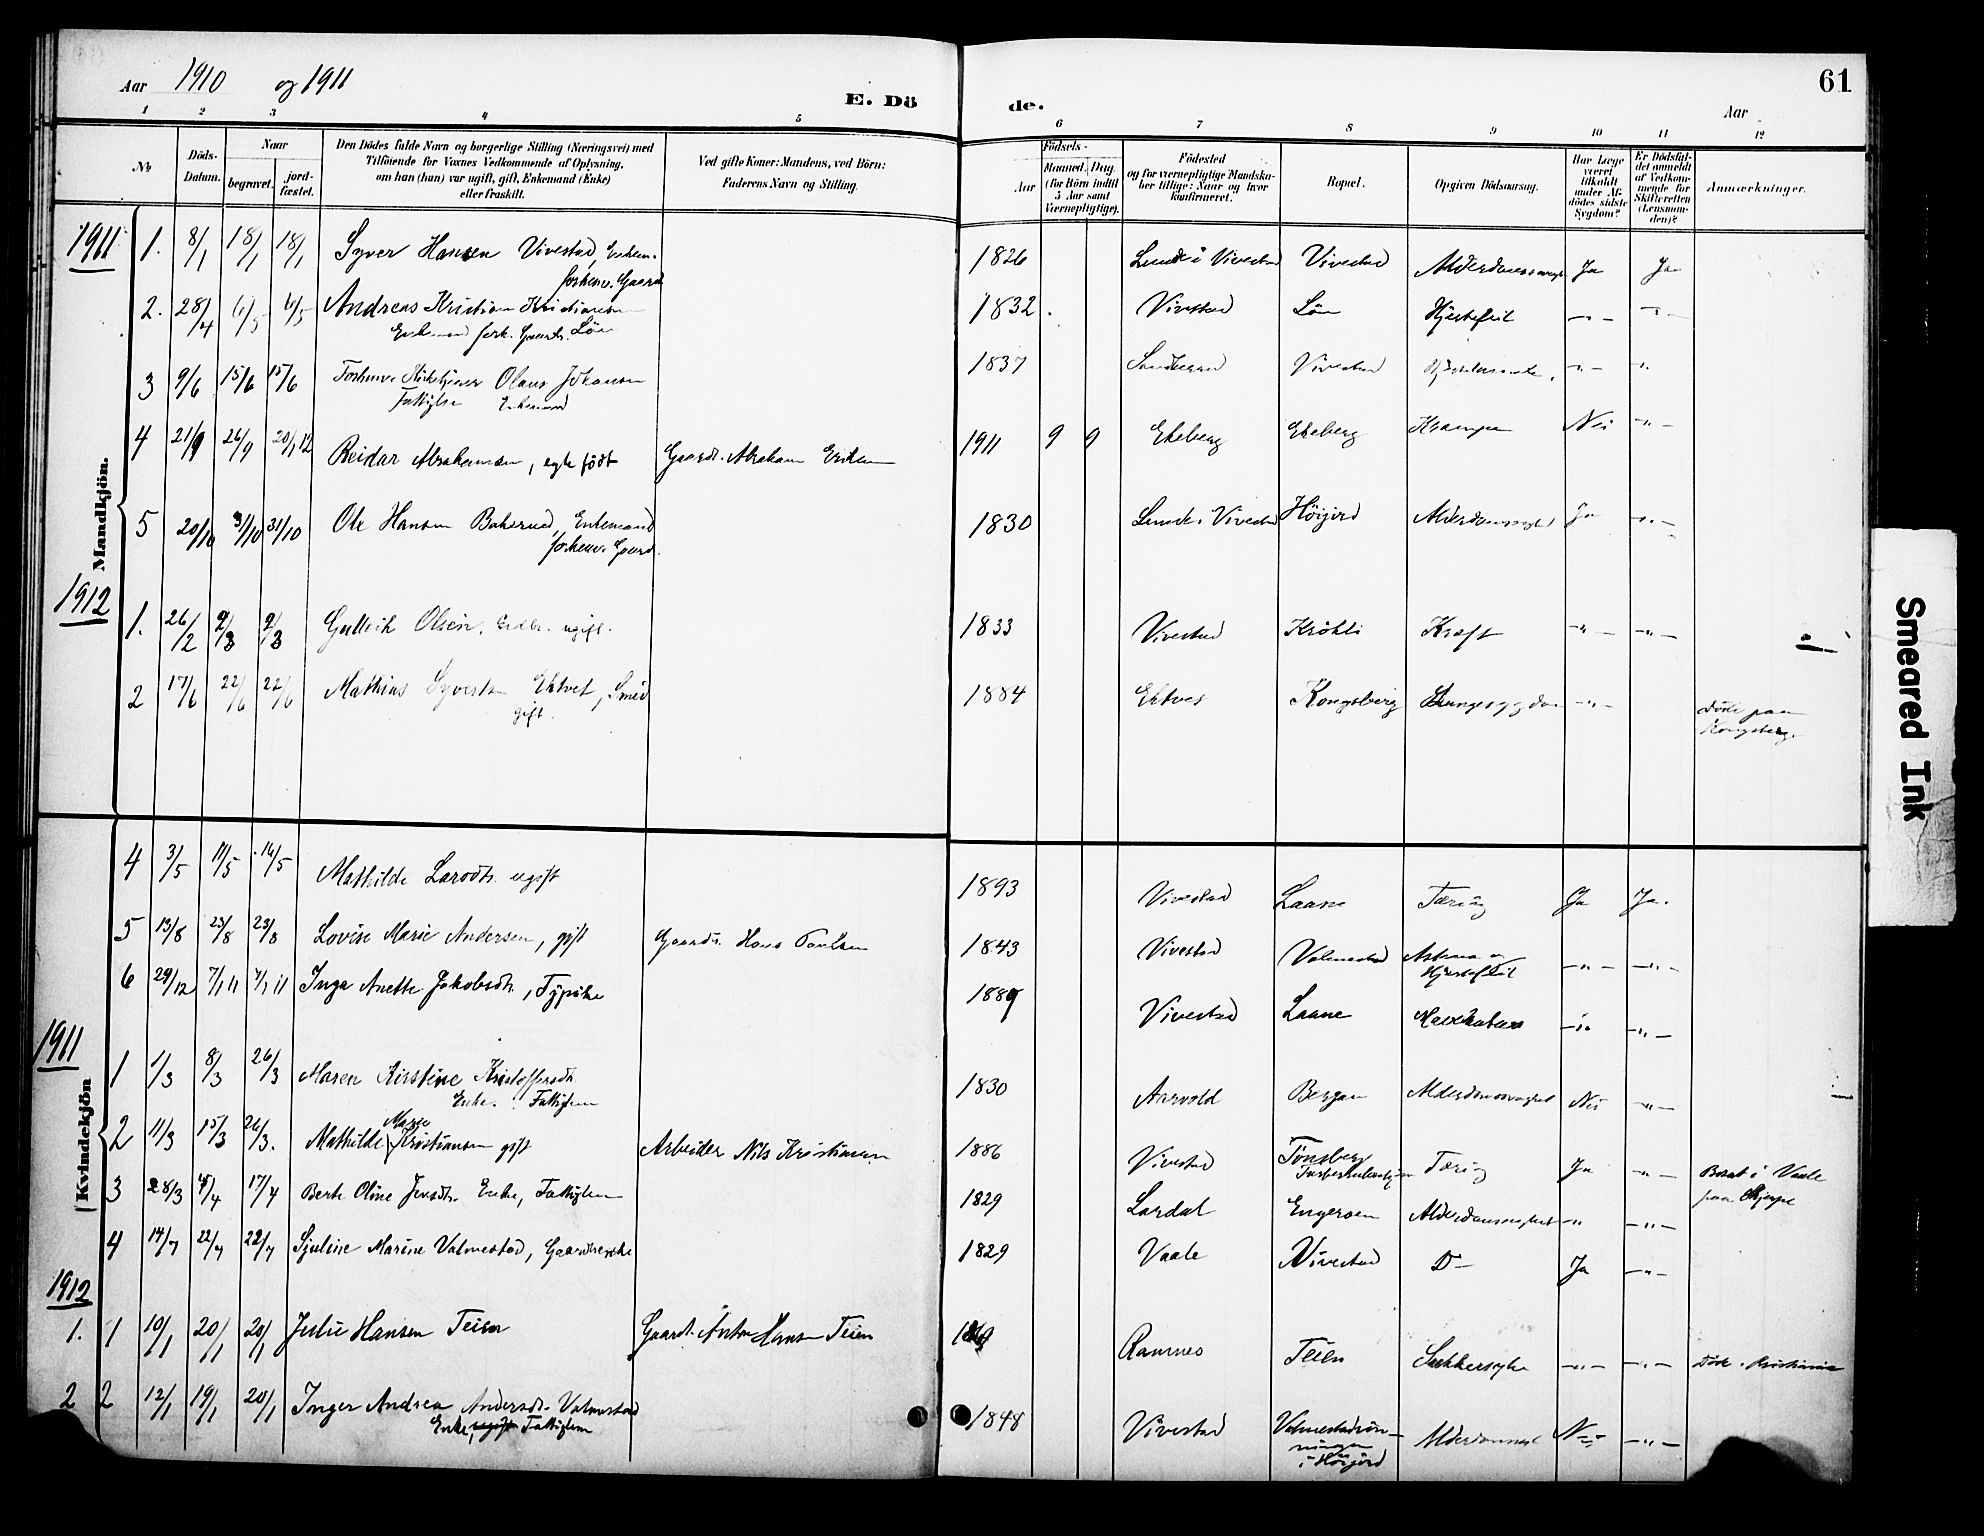 Aar 1910 og 1911
E. Dö
de.
Aar
61
1 2 3 4 5 6 7 8 9 10 11 12
Nr.
Döds-
Datum.
Naar
begravet.
jord-
fæstet.
Den Dödes fulde Navn og borgerlige Stilling (Næringsvei) med
Tilföiende for Voxnes Vedkommende af Oplysning,
om han (hun) var ugift, gift, Enkemand (Enke)
eller fraskilt.
Ved gifte Koner: Mandens, ved Börn:
Faderens Navn og Stilling.
Födsels-
Aar
Maaned. Dag.
(for Börn indtil
5 Aar samt
Værnepligtige).
Födested
og for værnepligtige Mandska-
ber tillige: Naar og hvor
konfirmeret.
Bopæl.
Opgiven Dödsaarsag.
Har Læge
været
tilkaldt
under Af-
dödes sidste
Sygdom?
Er Dödsfal-
det anmeldt
af Vedkom-
mende for
Skifteretten
(Lensman-
den)?
Anmærkninger.
Mandkjön.
1911
1. 8/1 18/1 18/1 Syver Hansen Vivestad, Enkem. 1826 Lunde i Vivestad Vivestad Alderdomssvagh Ja Ja
forhenv. Gaard
2. 28/4 6/5 6/5 Andreas Kristian Kristiansen 1832. Vivestad Lön Hjertefeil -"- -"-
Enkemand forh. Gaardb. Lön
3 9/6 15/6 15/6 Forhenv. Olaus Johansen 1837 Vivestad -"- -"-
Fattiglem Enkemand
4 21/9 26/9 20/12 Reidar Abrahamsen, egte födt Gaardb. Abraham Eriksen 1911 9 9 Ekeberg Ekeberg Krampe Nei -"-
5 20/10 31/10 31/10 Ole Hansen Bakerud, Enkemand 1830 Lunde i Vivestad Höijord Alderdomssvaghed Ja -"-
forhenv. Gaard.
1912
1. 26/2 9/3 9/3 Gulleik Olsen, ugift. 1833 Vivestad Kröhli Kræft -"- -"-
2 17/6 22/6 22/6 Mathias Syvertsen Ektvet, Smed 1884 Ektvet Kongsberg Lungesygdom -"- Döde paa
gift. Kongsberg.
Kvindekjön
4 3/5 11/5 14/5 Mathilde Larsdtr. ugift 1893 Vivestad Laane Tæring Ja Ja.
5 13/8 23/8 23/8 Lovise Marie Andersen, gift Gaardb. Hans Paulsen 1843 Vivestad Valmestad Astma og -"- -"-
Hjertefeil
6 29/12 7/1 11 7/1 11 Inga Anette Jakobsdtr., 1889 Vivestad Laane -"- -"-
1911
1 1/3 8/3 26/3 Maren Kirstine Kristoffersdtr. 1830 Aarvold Bergan Alderdomssvaghed Nei -"-
Enke. Fattiglem
2 11/3 15/3 26/3. Mathilde Marie Kristiansen gift Arbeider Nils Kristiansen 1886 Vivestad Tönsberg Tæring Ja -"- Bosat i Vaale
Tuberkulosehjem paa
3 28/3 4/4 17/4 Berte Oline Jensdtr. Enke, Fattiglem 1829 Lardal Engersen Alderdomssvaghed -"- -"-
4 14/7 22/7 22/7 Sjuline Marine Valmestad, Gaardbenke 1829 Vaale Vivestad D- Ja -"-
1912
1. 1 10/1 20/1 20/1 Julie Hansen Teien Gaardb. Anton Hansen Teien Ramnes Teien Sukkersyke -"- -"- Döde i Kristiania
2 2 12/1 19/1 20/1 Inger Andrea Andersdtr. Valmestad 1848 Vivestad Valmestadrön- Alderdomssv Nei -"-
Enke, ugift Fattiglem ningen
i Höijord
Smeared Ink